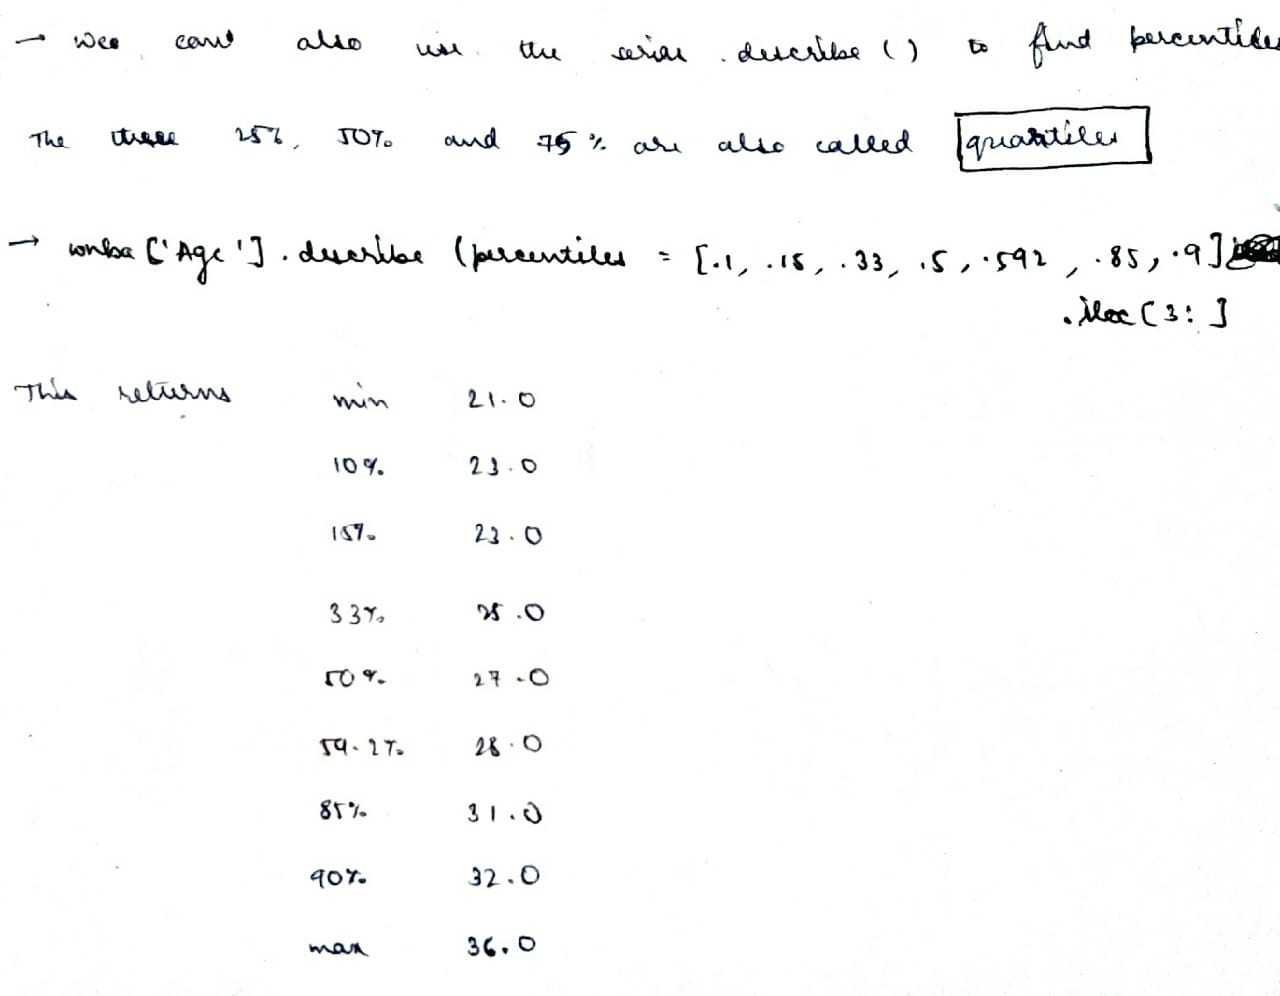 → Wee can also use the series .describe () to find percentiles
The three 25%, 50% and 75% are also called quartiles
→ wnba ['Age'] . describe (percentiles = [.1, .15, .33, .5, .592 , .85, .9]
.iloc [3: ]
This returns min 21.0
10% 23.0
15% 23.0
33% 25.0
50% 27.0
59.2% 28.0
85% 31.0
90% 32.0
max 36.0